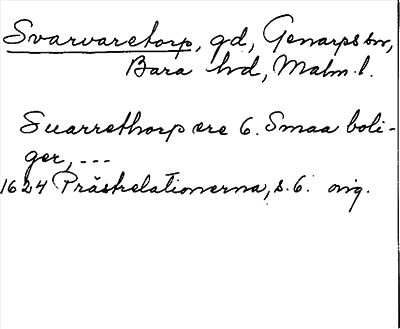 Svarvaretorp, gd, Genarps sn,
Bara hd, Malm. l.
Suarrethorp ere 6. Smaa boli-
ger, ---
1624 Prästrelationerna, s. 6. orig.